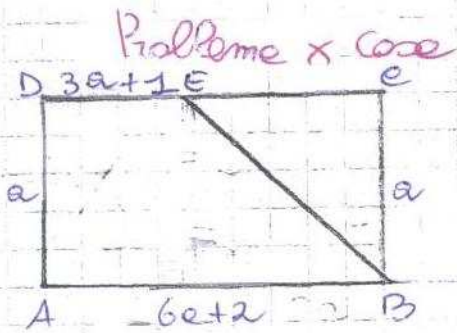 Problema x casa
D 3a+1 E C
a a
A 6a+2 B